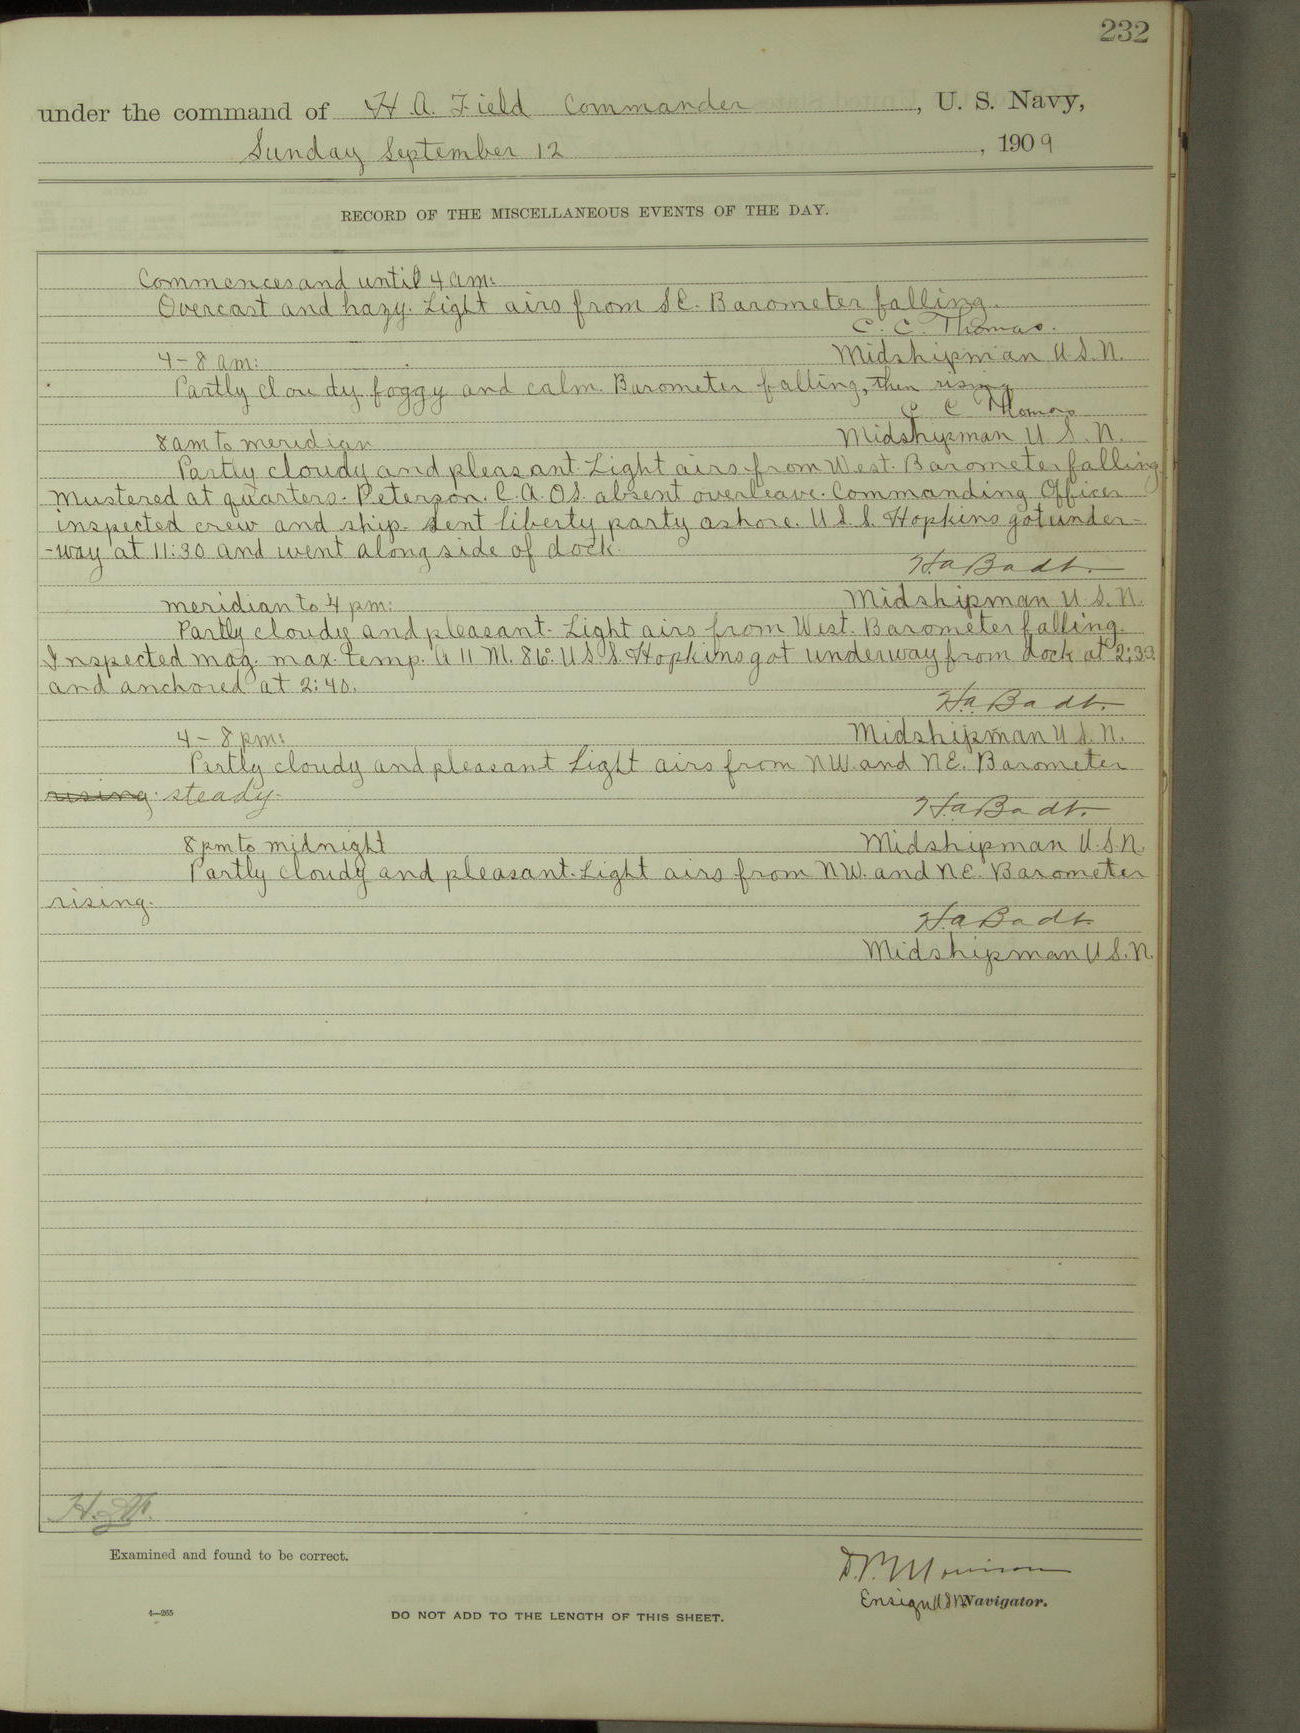 232
under the command of H A. Field Commander, U. S. Navy,
Sunday September 12, 1909
RECORD OF THE MISCELLANEOUS EVENTS OF THE DAY.
Commences and until 4 am:
Overcast and hazy. Light airs from SE. Barometer falling.
C. C. Thomas.
4-8 am: Midshipman U.S.N.
Partly cloudy foggy and calm. Barometer falling, then rising
C C Thomas
8 am to meridian Midshipman U.S.N.
Partly cloudy and pleasant. Light airs from West. Barometer falling
Mustered at quarters. Peterson. C. A. OS. absent overleave. Commanding Officer
inspected crew and ship. Sent liberty party ashore. U.S.S. Hopkins got under-
-way at 11:30 and went along side of dock.
H.a Badt.
meridian to 4 pm: Midshipman U.S.N.
Partly cloudy and pleasant. Light airs from West. Barometer falling.
Inspected mag. max. temp. A 11 M. 86°. U.S.S. Hopkins got underway from dock at 2:30
and anchored at 2:40.
H.a. Badt.
4-8 pm: Midshipman U.S.N.
Partly cloudy and pleasant Light airs from NW. and NE. Barometer
rising. steady.
H.a Badt.
8 pm to midnight Midshipman U.S.N.
Partly cloudy and pleasant. Light airs from NW. and NE. Barometer
rising.
H.a Badt.
Midshipman U.S.N.
Examined and found to be correct.
Ensign U.S.N. Navigator.
4—265
DO NOT ADD TO THE LENGTH OF THIS SHEET.